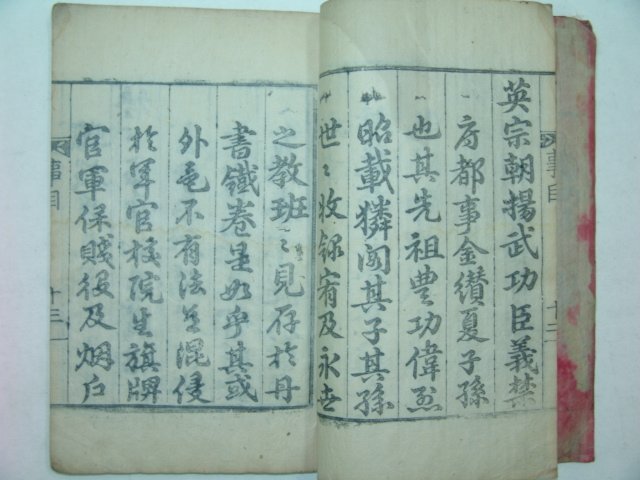 英宗朝揚武功臣義禁
府都事金纘夏子孫
也其先祖豊功偉烈
昭載獜閣其子其孫
世〻收錄宥及永世
之教班〻見存於丹
書鐵卷是如乎其或
外邑不有法旨混侵
於軍官校院生旗牌
官軍保賤役及烟户
事目 十二
事目 十三